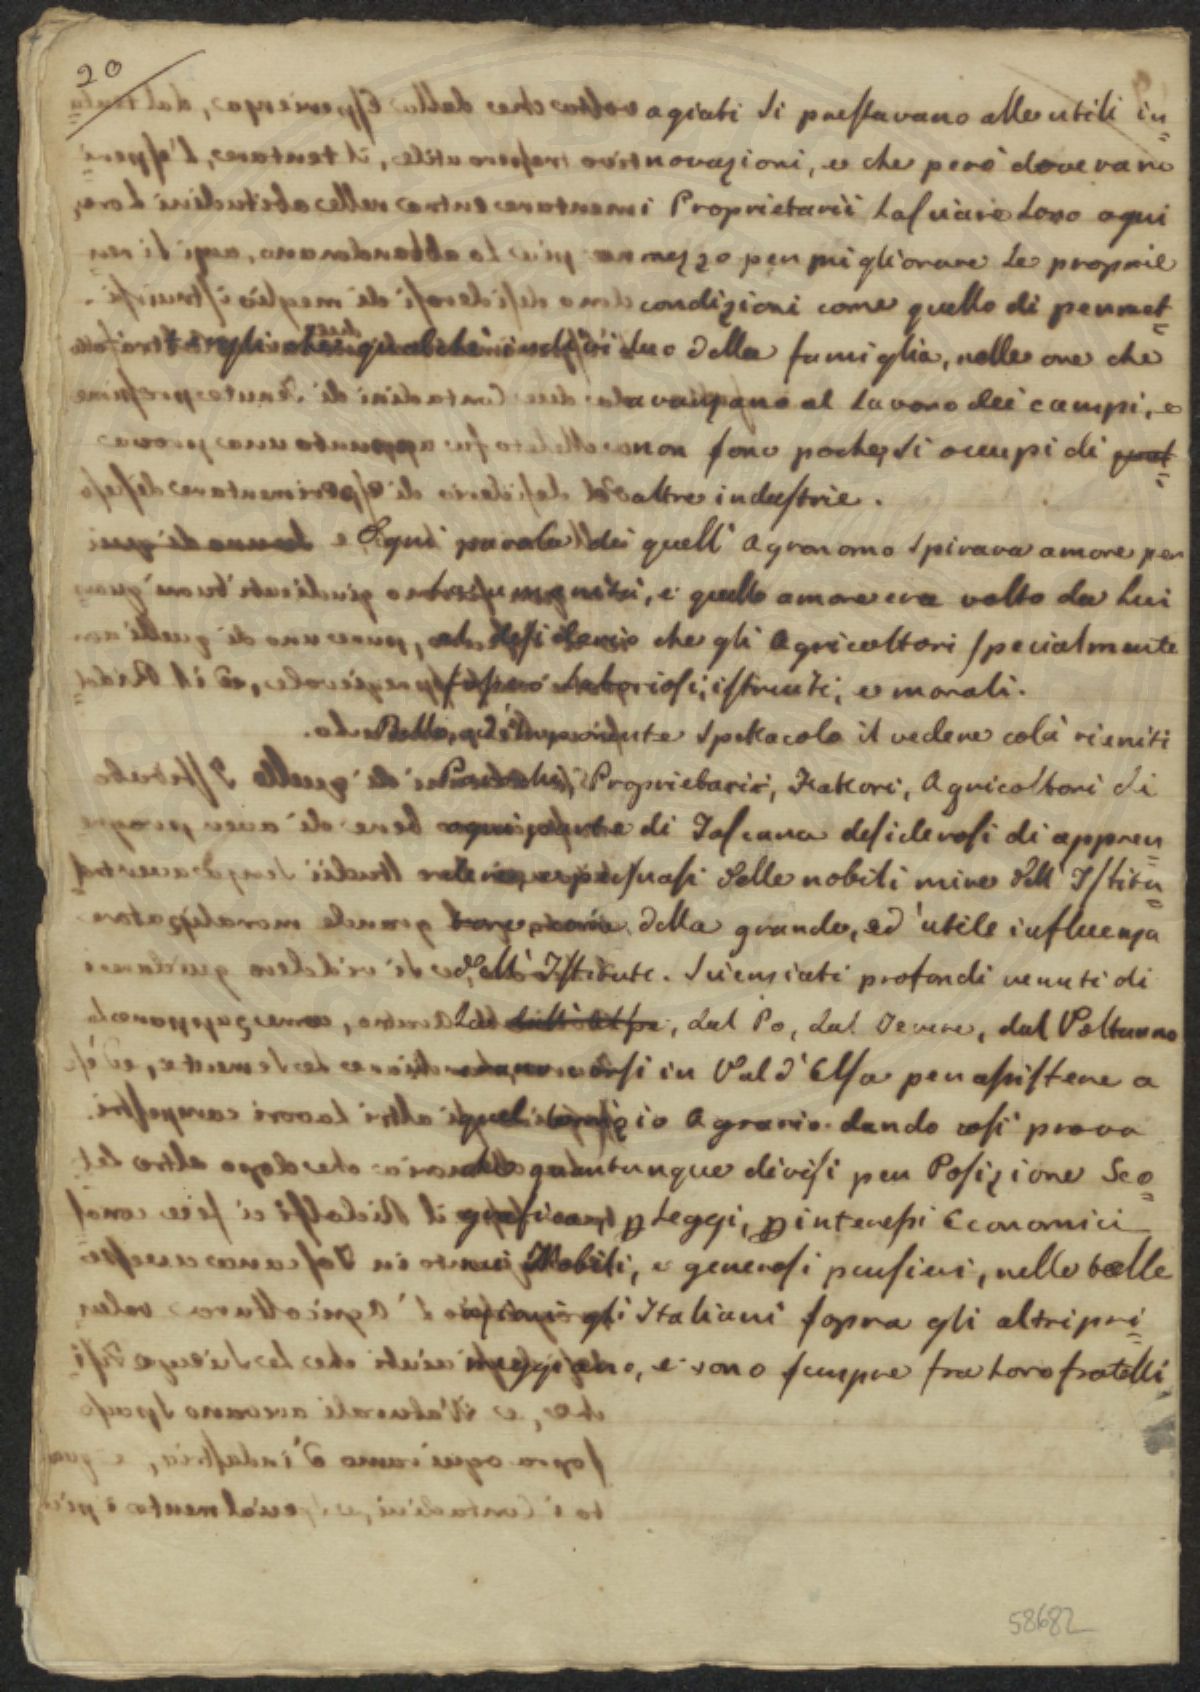 20
agiati si prestavano alle utili in=
novazioni, e che però dovevano
i Proprietarii lasciare loro ogni
mezzo per migliorare le proprie
condizioni come quello di permet=
che qualche individuo della famiglia, nelle ore che
avanzano al lavoro dei campi, e
non sono poche, si occupi di
altre industrie.
Ogni parola di quell' Agronomo spirava amore per
umanità, e quello amore era volto da Lui
al desiderio che gli Agricoltori specialmente
fossero laboriosi, istruiti, e morali.
Bello, ed imponente spettacolo il vedere colà riuniti
Parrochi, Proprietarii, Fattori, Agricoltori di
ogni parte di Toscana desiderosi di appren=
dere, e persuasi delle nobili mire dell' Istitu=
tore, della grande, ed utile influenza
dell' Istituto. Scienziati profondi venuti di
dall' Alpe, dal Po, dal Tevere, dal Volturno
in Val d' Elsa per assistere a
quel comizio Agrario dando così prova
che quantunque divisi per Posizione Geo=
grafica, p Leggi, p interessi Economici
Nobili, e generosi pensieri, nelle belle
azioni gli Italiani sopra gli altri pri=
meggiano, e sono sempre fra loro fratelli
58682